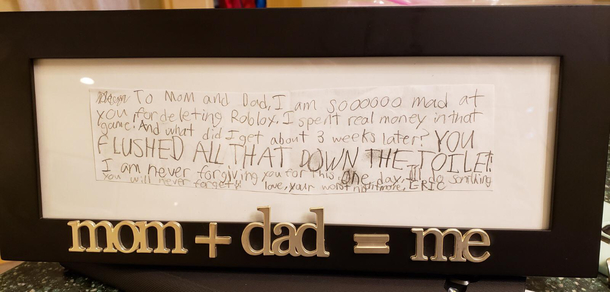 To Mom and Dad, I am soooooo mad at
you for deleting Roblox. I spent real money in that
game! And what did I get about 3 weeks later? YOU
FLUSHED ALL THAT DOWN THE TOILET!
I am never forgiving you for this. One day, I'll do somthing
you will never forget! love, your worst nightmare, ERIC
mom + dad = me